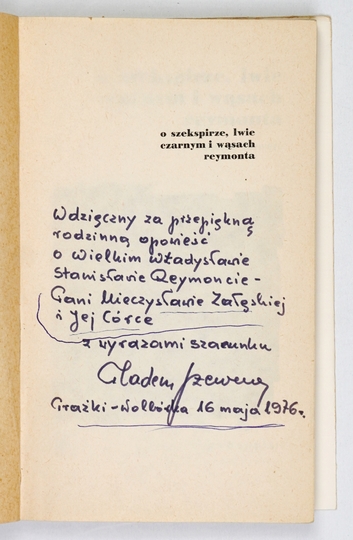 o szekspirze, lwie
czarnym i wąsach
reymonta
Wdzięczny za przepiękną
rodzinną opowieść
o wielkim Władysławie
Stanisławie Reymoncie -
Pani Mieczysławie Załęskiej
i Jej Córce
z wyrazami szacunku
16 maja 1976 r.